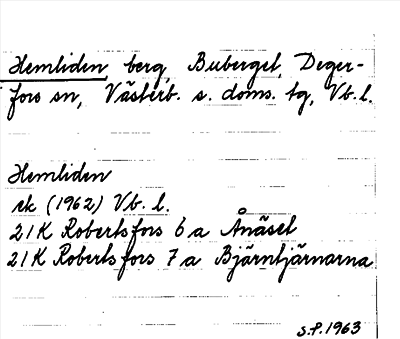 Hemliden, berg, Buberget, Deger-
fors sn, Västerb. s. doms. tg, Vb. l.
Hemliden
rk (1962) Vb. l.
21K Robertsfors 6 a Ånäset
21K Robertsfors 7 a Bjärntjärnarna
S.P. 1963